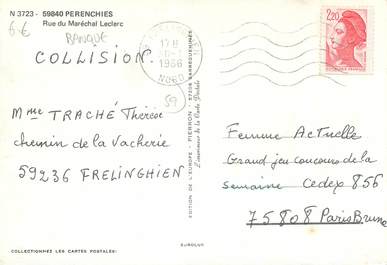 N 3723 - 59840 PERENCHIES
Rue du Maréchal Leclerc
6 €
BANQUE
COLLISION.
17 H
1986
NORD
59
2,20
Mme TRACHÉ Thérèse
chemin de la Vacherie
59236 FRELINGHIEN
EDITION DE L'EUROPE - PIERRON - 57206 SARREGUEMINES
L'amour de la Carte Postale
Femme Actuelle
Grand jeu concours de la
semaine Cedex 856
75808 Paris Brune
COLLECTIONNEZ LES CARTES POSTALES
EUROLUX